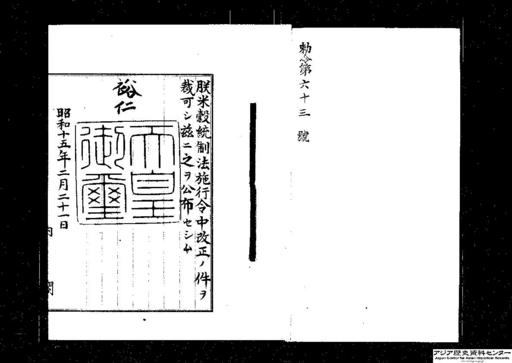 勅令第六十三號
朕米穀統制法施行令中改正ノ件ヲ
裁可シ茲ニ之ヲ公布セシム
裕仁
天皇
御璽
昭和十五年二月二十一日
内閣
アジア歴史資料センター
Japan Center for Asian Historical Records